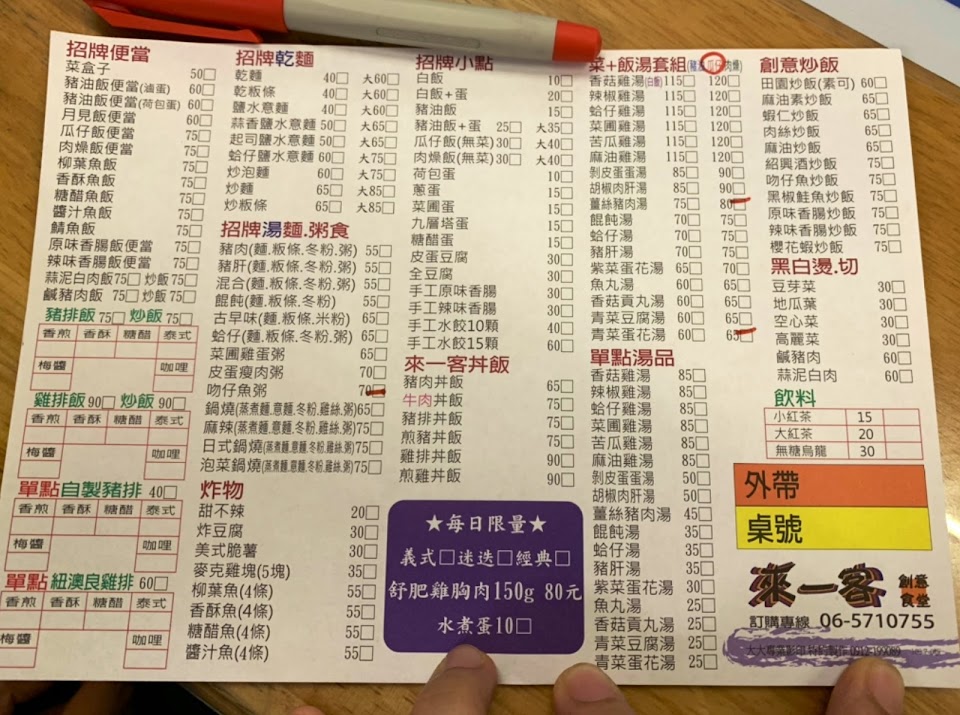 招牌便當
菜盒子 50□
豬油飯便當(滷蛋) 60□
豬油飯便當(荷包蛋) 60□
月見飯便當 60□
瓜仔飯便當 75□
肉燥飯便當 75□
柳葉魚飯 75□
香酥魚飯 75□
糖醋魚飯 75□
醬汁魚飯 75□
鯖魚飯 75□
原味香腸飯便當 75□
辣味香腸飯便當 75□
蒜泥白肉飯75□ 炒飯75□
鹹豬肉飯 75□ 炒飯75□
豬排飯75□ 炒飯75□
香煎 香酥 糖醋 泰式
梅醬 咖哩
雞排飯90□ 炒飯90□
香煎 香酥 糖醋 泰式
梅醬 咖哩
單點自製豬排 40□
香煎 香酥 糖醋 泰式
梅醬 咖哩
單點紐澳良雞排 60□
香煎 香酥 糖醋 泰式
梅醬 咖哩
招牌乾麵
乾麵 40□ 大60□
乾粄條 40□ 大60□
鹽水意麵 40□ 大60□
蒜香鹽水意麵 50□ 大65□
起司鹽水意麵 50□ 大65□
蛤仔鹽水意麵 60□ 大75□
炒泡麵 60□ 大75□
炒麵 65□ 大85□
炒粄條 65□ 大85□
招牌湯麵.粥食
豬肉(麵.粄條.冬粉.粥) 55□
豬肝(麵.粄條.冬粉.粥) 55□
混合(麵.粄條.冬粉.粥) 55□
餛飩(麵.粄條.冬粉) 55□
古早味(麵.粄條.米粉) 65□
蛤仔(麵.粄條.冬粉.粥) 65□
菜圃雞蛋粥 65□
皮蛋瘦肉粥 70□
吻仔魚粥 70□
鍋燒(蒸煮麵.意麵.冬粉.雞絲.粥)65□
麻辣(蒸煮麵.意麵.冬粉.雞絲.粥)75□
日式鍋燒(蒸煮麵.意麵.冬粉.雞絲.粥)75□
泡菜鍋燒(蒸煮麵.意麵.冬粉.雞絲.粥)75□
炸物
甜不辣 20□
炸豆腐 30□
美式脆薯 30□
麥克雞塊(5塊) 35□
柳葉魚(4條) 55□
香酥魚(4條) 55□
糖醋魚(4條) 55□
醬汁魚(4條) 55□
招牌小點
白飯 10□
白飯+蛋 20□
豬油飯 15□
豬油飯+蛋 25□ 大35□
瓜仔飯(無菜)30□ 大40□
肉燥飯(無菜)30□ 大40□
荷包蛋 10□
蔥蛋 15□
菜圃蛋 15□
九層塔蛋 15□
糖醋蛋 15□
皮蛋豆腐 30□
全豆腐 30□
手工原味香腸 30□
手工辣味香腸 30□
手工水餃10顆 40□
手工水餃15顆 60□
來一客丼飯
豬肉丼飯 65□
牛肉丼飯 75□
豬排丼飯 75□
煎豬丼飯 75□
雞排丼飯 90□
煎雞丼飯 90□
★每日限量★
義式□迷迭□經典□
舒肥雞胸肉150g 80元
水煮蛋10□
菜+飯湯套組
香菇雞湯 115□ 120□
辣椒雞湯 115□ 120□
蛤仔雞湯 115□ 120□
菜圃雞湯 115□ 120□
苦瓜雞湯 115□ 120□
麻油雞湯 115□ 120□
剝皮蛋蛋湯 85□ 90□
胡椒肉肝湯 85□ 90□
薑絲豬肉湯 75□ 80□
餛飩湯 70□ 75□
蛤仔湯 70□ 75□
豬肝湯 70□ 75□
紫菜蛋花湯 65□ 70□
魚丸湯 60□ 65□
香菇貢丸湯 60□ 65□
青菜豆腐湯 60□ 65□
青菜蛋花湯 60□ 65□
單點湯品
香菇雞湯 85□
辣椒雞湯 85□
蛤仔雞湯 85□
菜圃雞湯 85□
苦瓜雞湯 85□
麻油雞湯 85□
剝皮蛋蛋湯 50□
胡椒肉肝湯 50□
薑絲豬肉湯 45□
餛飩湯 35□
蛤仔湯 35□
豬肝湯 35□
紫菜蛋花湯 30□
魚丸湯 25□
香菇貢丸湯 25□
青菜豆腐湯 25□
青菜蛋花湯 25□
創意炒飯
田園炒飯(素可) 60□
麻油素炒飯 65□
蝦仁炒飯 65□
肉絲炒飯 65□
麻油炒飯 65□
紹興酒炒飯 75□
吻仔魚炒飯 75□
黑椒鮭魚炒飯 75□
原味香腸炒飯 75□
辣味香腸炒飯 75□
櫻花蝦炒飯 75□
黑白燙.切
豆芽菜 30□
地瓜葉 30□
空心菜 30□
高麗菜 30□
鹹豬肉 60□
蒜泥白肉 60□
飲料
小紅茶 15
大紅茶 20
無糖烏龍 30
外帶
桌號
來一客 創意食堂
訂購專線 06-5710755